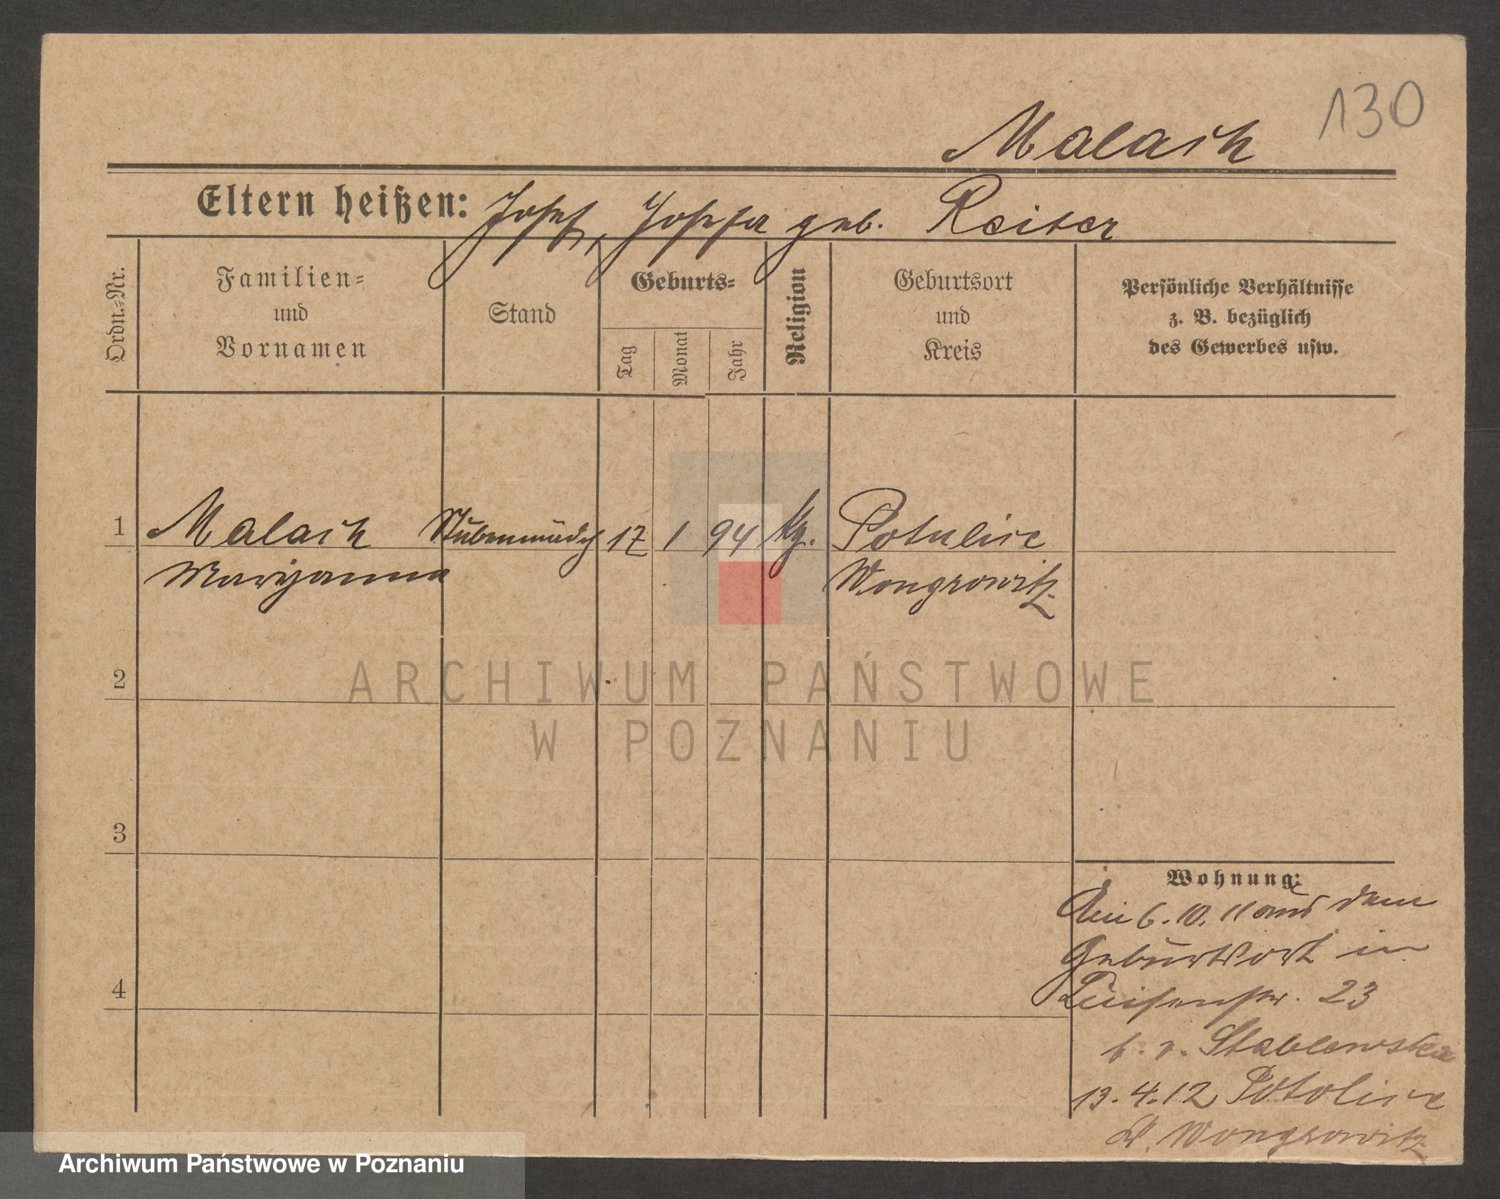 130
Malaih
Eltern heißen: Josef, Josefa geb. Reiter
Ordn.=Nr.
Familien=
und
Vornamen
Stand
Geburts=
Tag
Monat
Jahr
Religion
Geburtsort
und
Kreis
Persönliche Verhältnisse
z. B. bezüglich
des Gewerbes usw.
1 Malaih Stubenmädch 17 1 94 kg. Potulice
Maryanna Wongrowitz
2
ARCHIWUM PAŃSTWOWE
W POZNANIU
3
Wohnung:
Am 6. 10. 11 aus dem
Geburtsort in
Luisenstr. 23
b. v. Stablewska
13. 4. 12 Potolice
K. Wongrowitz
4
Archiwum Państwowe w Poznaniu